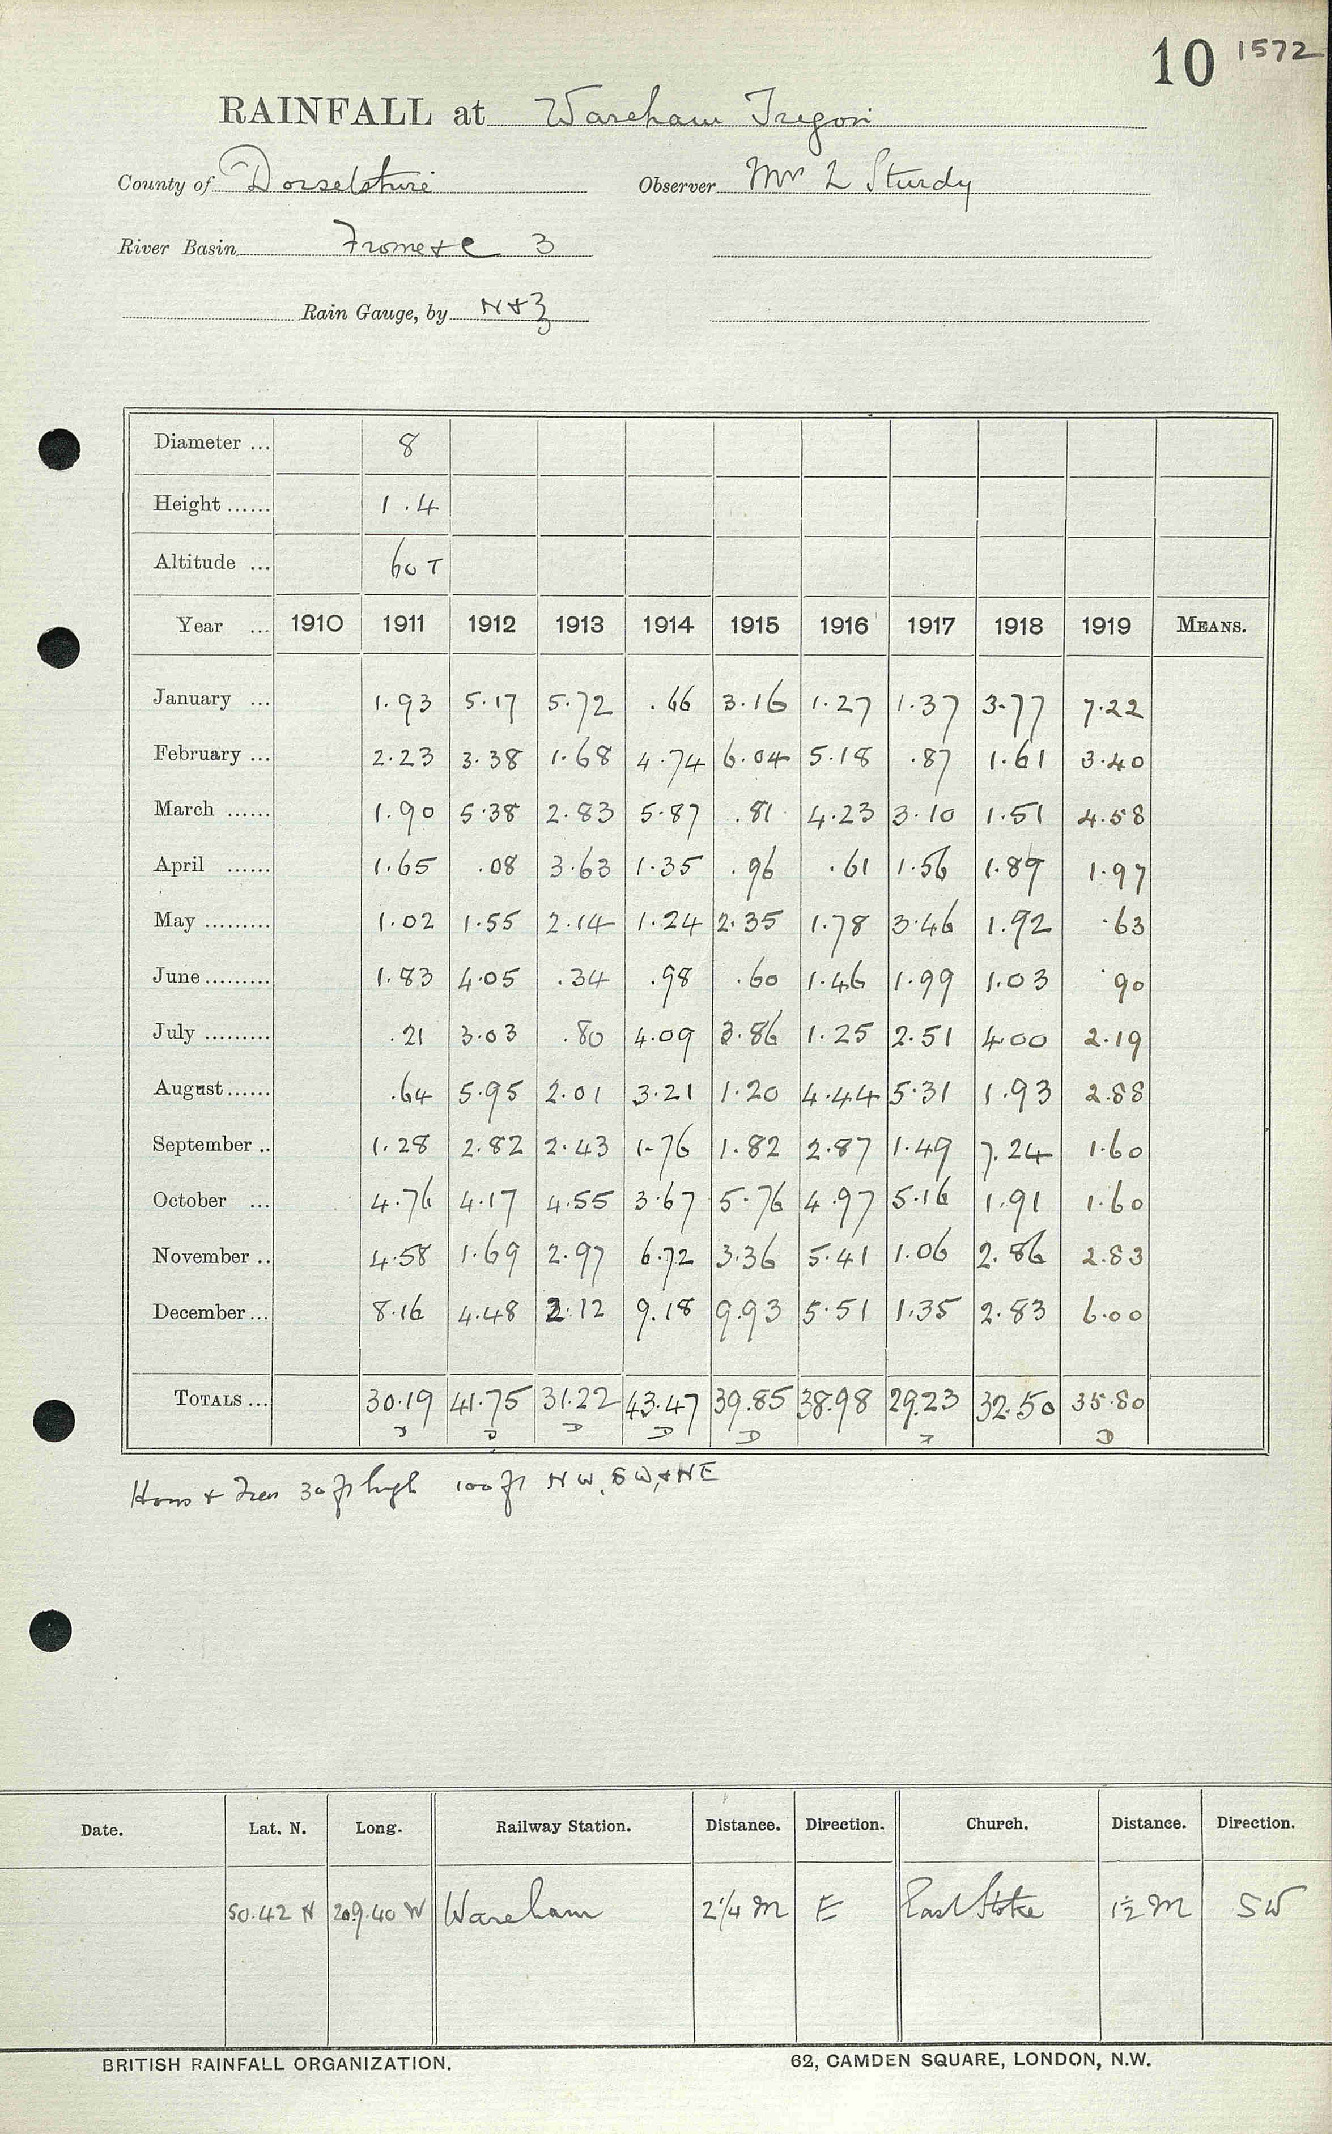 10 1572
RAINFALL at Wareham Trigon
County of Dorsetshire Observer Mr L Sturdy
River Basin Frome &c 3
Rain Gauge, by N & Z
Diameter ... 8
Height ...... 1.4
Altitude ... 60 T
Year ... 1910 1911 1912 1913 1914 1915 1916 1917 1918 1919 MEANS.
January ... 1.93 5.17 5.72 .66 3.16 1.27 1.37 3.77 7.22
February ... 2.23 3.38 1.68 4.74 6.04 5.18 .87 1.61 3.40
March ...... 1.90 5.38 2.83 5.87 .81 4.23 3.10 1.51 4.58
April ...... 1.65 .08 3.63 1.35 .96 .61 1.56 1.89 1.97
May ......... 1.02 1.55 2.14 1.24 2.35 1.78 3.46 1.92 .63
June ......... 1.83 4.05 .34 .98 .60 1.46 1.99 1.03 .90
July ......... .21 3.03 .80 4.09 3.86 1.25 2.51 4.00 2.19
August ...... .64 5.95 2.01 3.21 1.20 4.44 5.31 1.93 2.88
September .. 1.28 2.82 2.43 1.76 1.82 2.87 1.49 7.24 1.60
October ... 4.76 4.17 4.55 3.67 5.76 4.97 5.16 1.91 1.60
November .. 4.58 1.69 2.97 6.72 3.36 5.41 1.06 2.86 2.83
December ... 8.16 4.48 2.12 9.18 9.93 5.51 1.35 2.83 6.00
TOTALS ... 30.19 41.75 31.22 43.47 39.85 38.98 29.23 32.50 35.80
D D D D D D
House & Trees 30 ft high 100 ft NW, SW, & NE
Date. Lat. N. Long. Railway Station. Distance. Direction. Church. Distance. Direction.
50.42 N 2.09.40 W Wareham 2 1/4 M E East Stoke 1 1/2 M SW
BRITISH RAINFALL ORGANIZATION. 62, CAMDEN SQUARE, LONDON, N.W.